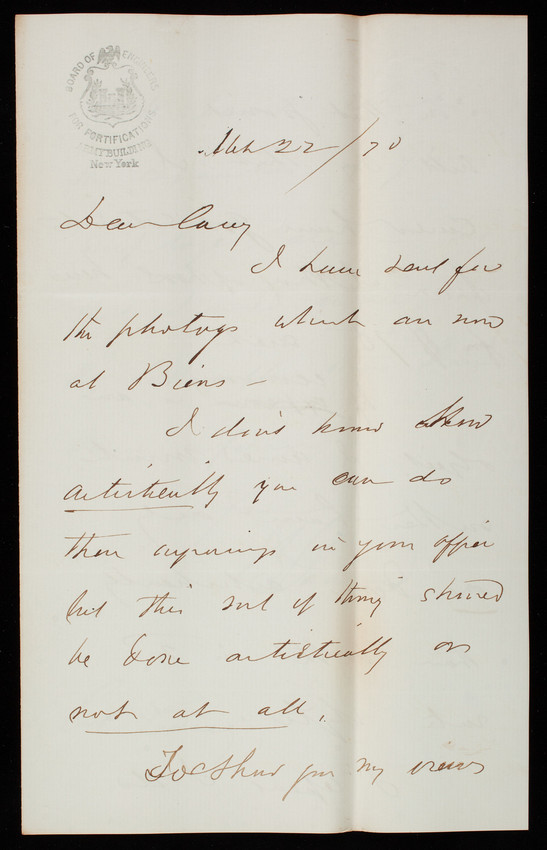 BOARD OF ENGINEERS
FOR FORTIFICATIONS
ARMY BUILDING
New York
Mch 22/70
Dear Casey
I have sent for
the photogs which are now
at Biens –
I don't know how
artistically you can do
these engravings in your office
but this sort of thing should
be done artistically or
not at all.
To show you my views